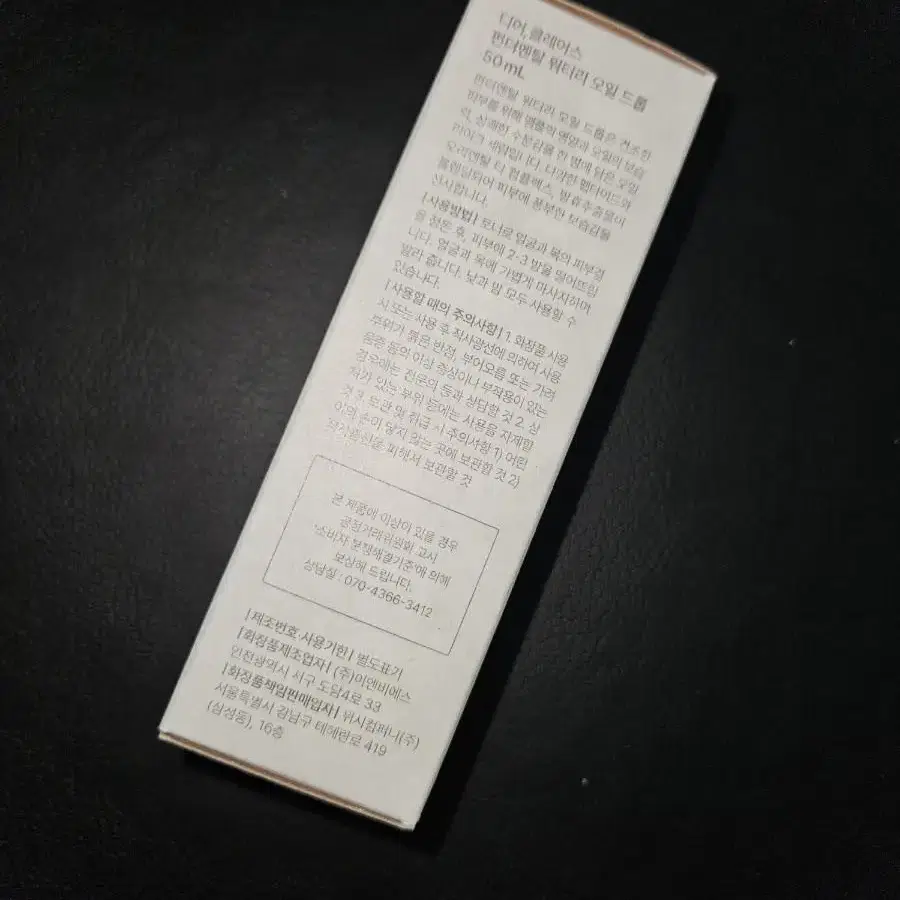 디어, 클레어스
펀더멘탈 워터리 오일 드롭
50 mL
펀더멘탈 워터리 오일 드롭은 건조한
피부를 위해 앰플의 영양과 오일의 보습
력, 상쾌한 수분감을 한 병에 담은 오일
타입의 세럼입니다. 다각한 펩타이드와
오리엔탈 티 컴플렉스, 발효추출물이
블렌딩되어 피부에 풍부한 보습감을
선사합니다.
|사용방법| 토너로 얼굴과 목의 피부결
을 정돈 후, 피부에 2-3 방울 떨어뜨립
니다. 얼굴과 목에 가볍게 마사지하며
발라 줍니다. 낮과 밤 모두 사용할 수
있습니다.
|사용할 때의 주의사항| 1. 화장품 사용
시 또는 사용 후 직사광선에 의하여 사용
부위가 붉은 반점, 부어오름 또는 가려
움증 등의 이상 증상이나 부작용이 있는
경우에는 전문의 등과 상담할 것 2. 상
처가 있는 부위 등에는 사용을 자제할
것 3. 보관 및 취급 시 주의사항 1) 어린
이의 손이 닿지 않는 곳에 보관할 것 2)
직사광선을 피해서 보관할 것
본 제품에 이상이 있을 경우
공정거래위원회 고시
'소비자 분쟁해결기준'에 의해
보상해 드립니다.
상담실 : 070-4366-3412
|제조번호 사용기한| 별도표기
|화장품제조업자| (주)이앤비에스
인천광역시 서구 도담4로 33
|화장품책임판매업자| 위시컴퍼니(주)
서울특별시 강남구 테헤란로 419
(삼성동), 16층